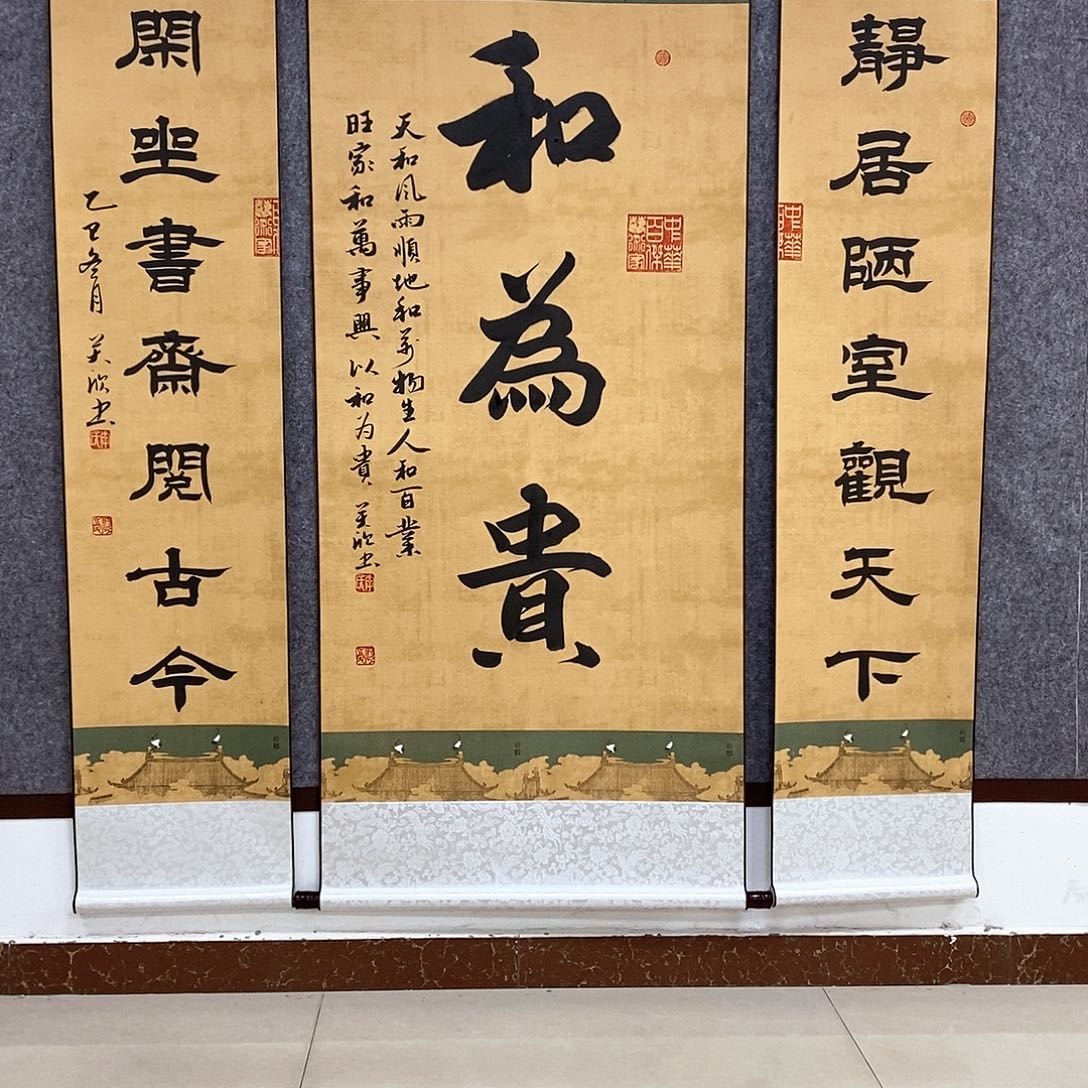 靜居陋室觀天下
和為貴
天和風雨順地和萬物生人和百業
旺家和萬事興以和为貴 美欣书
閑坐書齋閱古今
乙巳冬月 美欣书
中華百傑書術家